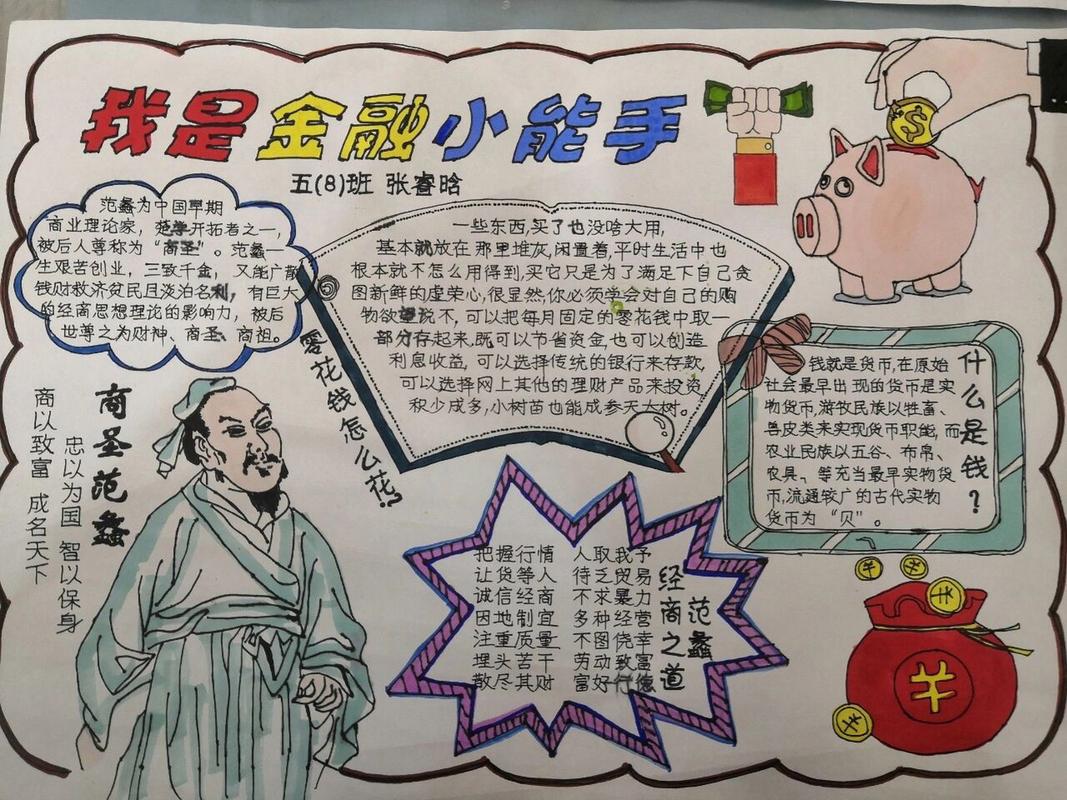 我是金融小能手
五(8)班 张睿晗
范蠡为中国早期
商业理论家，范学开拓者之一，
被后人尊称为“商圣”。范蠡一
生艰苦创业，三致千金，又能广散
钱财救济贫民且淡泊名利，有巨大
的经商思想理论的影响力，被后
世尊之为财神、商圣、商祖。
零花钱怎么花?
一些东西,买了也没啥大用,
基本就放在那里堆灰,闲置着,平时生活中也
根本就不怎么用得到,买它只是为了满足下自己贪
图新鲜的虚荣心,很显然,你必须学会对自己的购
物欲望说不,可以把每月固定的零花钱中取一
部分存起来,既可以节省资金,也可以创造
利息收益,可以选择传统的银行来存款,
可以选择网上其他的理财产品来投资
积少成多,小树苗也能成参天大树。
什么是钱?
钱就是货币,在原始
社会最早出现的货币是实
物货币,游牧民族以牲畜、
兽皮类来实现货币职能,而
农业民族以五谷、布帛、
农具、等充当最早实物货
币,流通较广的古代实物
货币为“贝”。
商圣范蠡
忠以为国 智以保身
商以致富 成名天下
范蠡
经商之道
把握行情 人取我予
让货等人 待乏贸易
诚信经商 不求暴力
因地制宜 多种经营
注重质量 不图侥幸
埋头苦干 劳动致富
散尽其财 富好行德